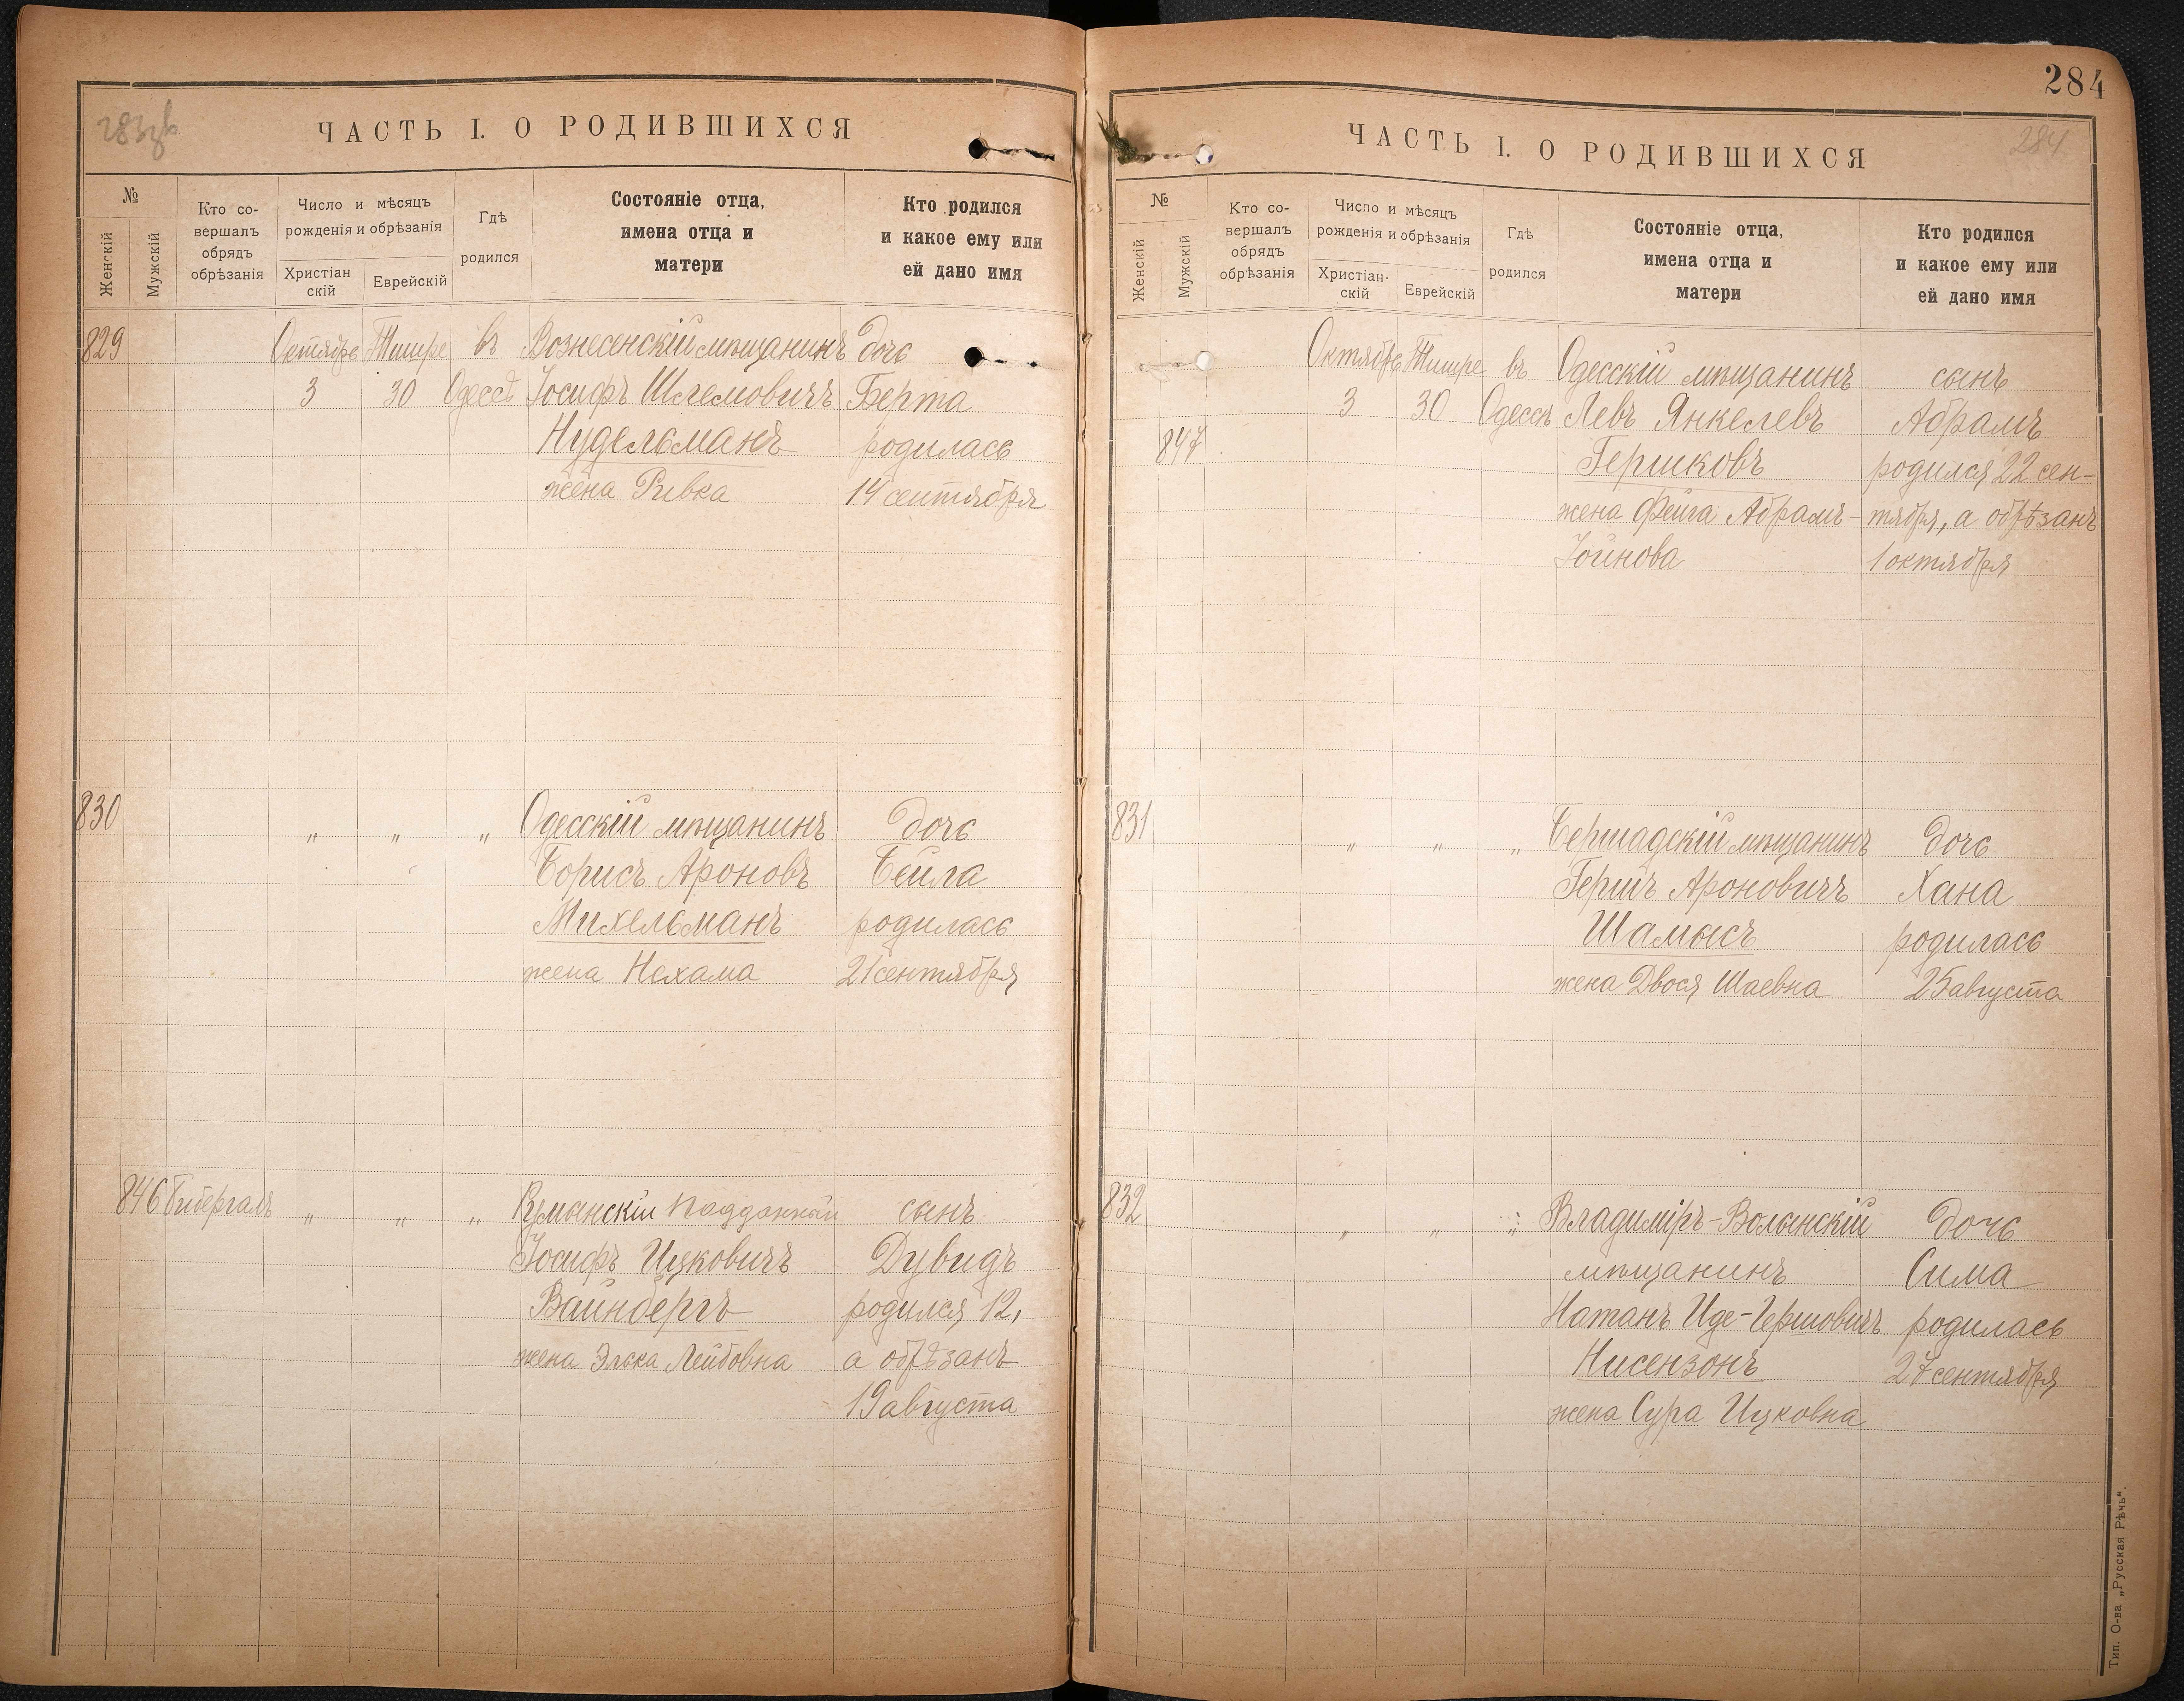 283
ЧАСТЬ I. О РОДИВШИХСЯ
№
Женскій
Мужскій
Кто со-
вершалъ
обрядъ
обрѣзанія
Число и мѣсяцъ
рожденія и обрѣзанія
Христіан
скій
Еврейскій
Гдѣ
родился
Состояніе отца,
имена отца и
матери
Кто родился
и какое ему или
ей дано имя
829 Октября Тишре въ Вознесенскій мѣщанинъ дочь
3 30 Одессѣ Іосифъ Шлемовичъ Берта
Нудельманъ родилась
жена Ривка 14 сентября
830 " " " Одесскій мѣщанинъ дочь
Борисъ Ароновъ Бейла
Михельманъ родилась
жена Нехама 21 сентября
846 " " " Румынскій подданный сынъ
Іосифъ Ицковичъ Дувидъ
Вайнбергъ родился 12,
жена Элька Лейбовна а обрѣзанъ
19 августа
284
ЧАСТЬ I. О РОДИВШИХСЯ
284
№
Женскій
Мужскій
Кто со-
вершалъ
обрядъ
обрѣзанія
Число и мѣсяцъ
рожденія и обрѣзанія
Христіан-
скій
Еврейскій
Гдѣ
родился
Состояніе отца,
имена отца и
матери
Кто родился
и какое ему или
ей дано имя
Октября Тишре въ Одесскій мѣщанинъ сынъ
3 30 Одессѣ Левъ Янкелевъ Абрамъ
847 Гершковъ родился 22 сен-
жена Фейга Абрамъ- тября, а обрѣзанъ
Іойнова 1 октября
831 " " " Бершадскій мѣщанинъ дочь
Гершъ Ароновичъ Хана
Шамысъ родилась
жена Двося Шаевна 25 августа
832 " " " Владиміръ-Волынскій дочь
мѣщанинъ Сима
Натанъ Иде-Гершовичъ родилась
Нисензонъ 27 сентября
жена Сура Ицковна
Тип. О-ва „Русская Рѣчь“.